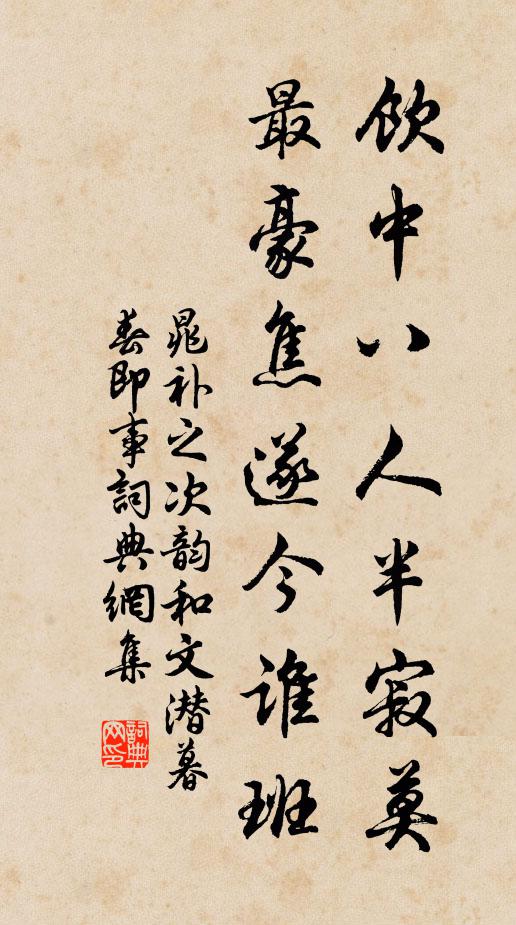 飲中八人半寂莫
最豪焦遂今誰班
晁补之次韵和文潜暮
春即事詞典網集
詞典網印